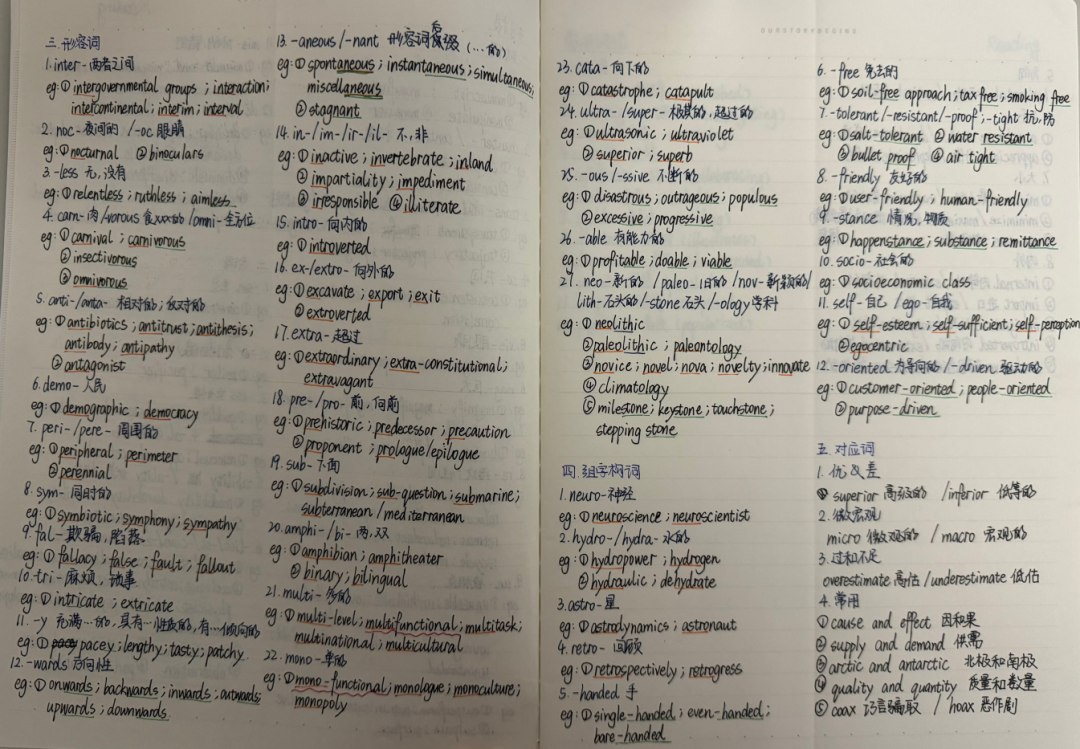 三.形容词
1.inter-两者之间
eg:①intergovernmental groups；interaction；
intercontinental；interim；interval
2. noc-夜间的 /-oc 眼睛
eg:①nocturnal ②binoculars
3.-less 无,没有
eg:①relentless；ruthless；aimless
4. carn-肉/vorous 食xxx的/omni-全方位
eg:①carnival；carnivorous
②insectivorous
③omnivorous
5. anti-/anta- 相对的；敌对的
eg:①antibiotics；antitrust；antithesis；
antibody；antipathy
②antagonist
6. demo- 人民
eg:①demographic；democracy
7. peri-/pere- 周围的
eg:①peripheral；perimeter
②perennial
8. sym- 同时的
eg:①symbiotic；symphony；sympathy
9. fal-欺骗,陷落
eg:①fallacy；false；fault；fallout
10. tri-麻烦,琐事
eg:①intricate；extricate
11. -y 充满…的,具有…性质的,有…倾向的
eg:①pacey；lengthy；tasty；patchy
12.-wards 方向性
eg:①onwards；backwards；inwards；outwards；
upwards；downwards
13. -aneous/-nant 形容词后缀 (…的)
eg:①spontaneous；instantaneous；simultaneous；
miscellaneous
②stagnant
14. in-/im-/ir-/il- 不,非
eg:①inactive；invertebrate；inland
②impartiality；impediment
③irresponsible ④illiterate
15. intro- 向内的
eg:①introverted
16. ex-/extro- 向外的
eg:①excavate；export；exit
②extroverted
17. extra-超过
eg:①extraordinary；extra-constitutional；
extravagant
18. pre-/pro- 前,向前
eg:①prehistoric；predecessor；precaution
②proponent；prologue/epilogue
19. sub-下面
eg:①subdivision；sub-question；submarine；
subterranean/mediterranean
20. amphi-/bi- 两,双
eg:①amphibian；amphitheater
②binary；bilingual
21. multi- 多的
eg:①multi-level；multifunctional；multitask；
multinational；multicultural
22. mono-单的
eg:①mono-functional；monologue；monoculture；
monopoly
23. cata-向下的
eg:①catastrophe；catapult
24. ultra-/super-极其的,超过的
eg:①ultrasonic；ultraviolet
②superior；superb
25. -ous/-ssive 不断的
eg:①disastrous；outrageous；populous
②excessive；progressive
26. -able 有能力的
eg:①profitable；doable；viable
27. neo-新的 /paleo-旧的 /nov-新颖的/
lith-石头的/-stone石头/-ology学科
eg:①neolithic
②paleolithic；paleontology
③novice；novel；nova；novelty；innovate
④climatology
⑤milestone；keystone；touchstone；
stepping stone
四.组字构词
1.neuro-神经
eg:①neuroscience；neuroscientist
2. hydro-/hydra-水的
eg:①hydropower；hydrogen
②hydraulic；dehydrate
3.astro-星
eg:①astrodynamics；astronaut
4. retro- 回顾
eg:①retrospectively；retrogress
5 -handed 手
eg:①single-handed；even-handed；
bare-handed
6. -free 免去的
eg:①soil-free approach；tax free；smoking free
7.-tolerant/-resistant/-proof；-tight 抗,防
eg:①salt-tolerant ②water resistant
③bullet proof ④air tight
8. -friendly 友好的
eg:①user-friendly；human-friendly
9. -stance 情况,物质
eg:①happenstance；substance；remittance
10. socio-社会的
eg:①socioeconomic class
11. self-自己 /ego-自我
eg:①self-esteem；self-sufficient；self-perception
②egocentric
12. -oriented 为导向的 /-driven 驱动的
eg:①customer-oriented；people-oriented
②purpose-driven
五.对应词
1. 优&差
superior 高级的 /inferior 低等的
2. 微宏观
micro 微观的 /macro 宏观的
3. 过和不足
overestimate 高估/underestimate 低估
4. 常用
①cause and effect 因和果
②supply and demand 供需
③arctic and antarctic 北极和南极
④quality and quantity 质量和数量
⑤coax 巧言骗取 / hoax 恶作剧